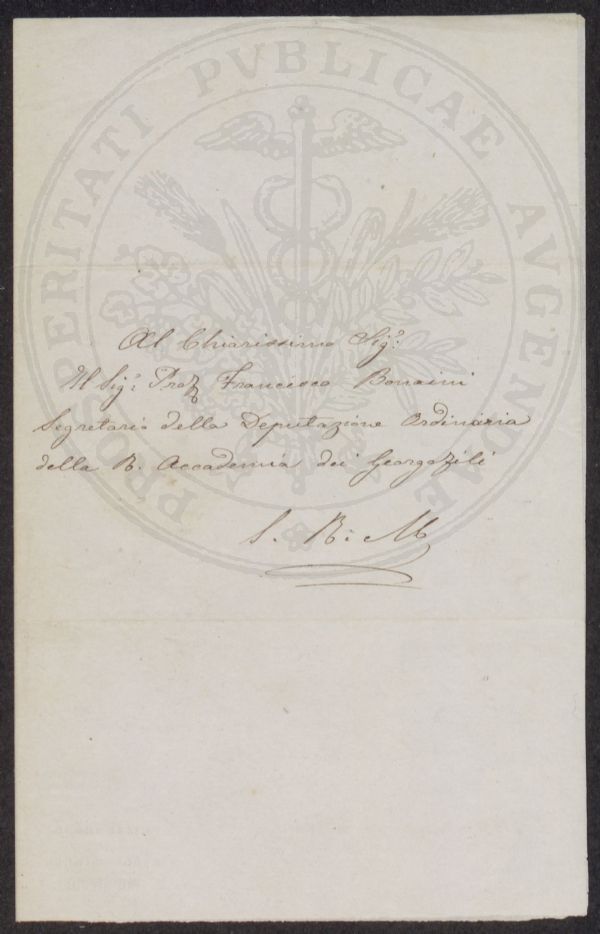 PROSPERITATI PVBLICAE AVGENDAE
Al Chiarissimo Sigr:
Il Sigr: Prof Francesco Bonaini
Segretario della Deputazione Ordinaria
della R. Accademia dei Georgofili
S. R. M.